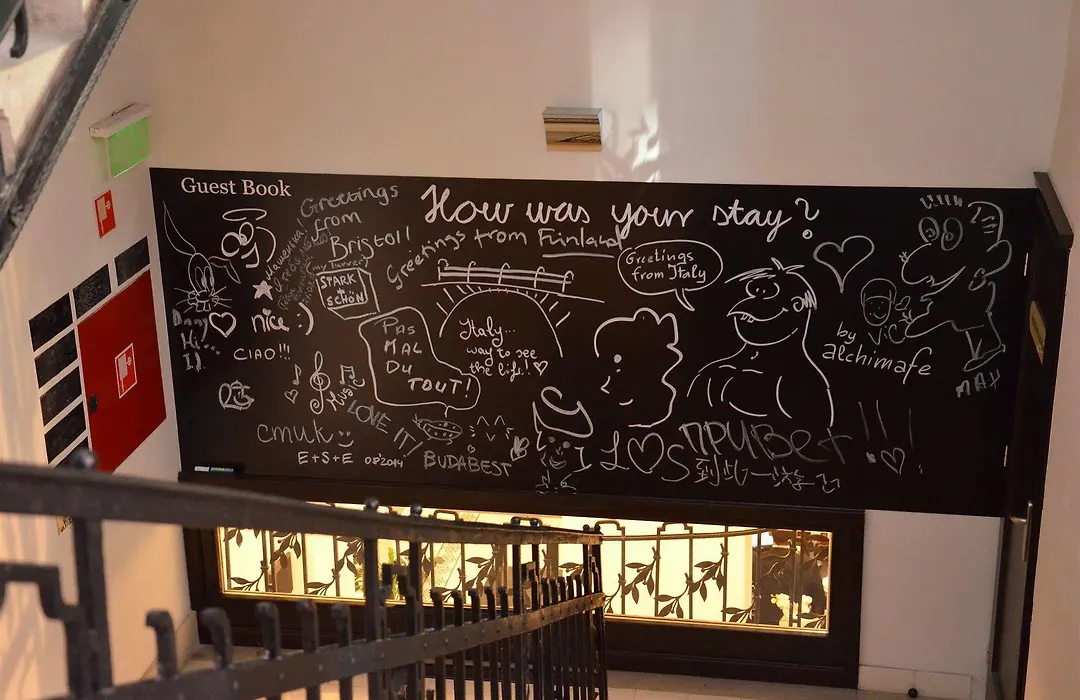 Guest Book
How was your stay?
Greetings
from
Bristol!
Greetings from Finland
Greetings
from Italy
STARK
SCHÖN
nice :)
CIAO!!!
Hi!
PAS
MAL
DU
TOUT!
Italy...
way to see
the life!
by
alchimafe
MAX
Music
LOVE IT!
cmuk
E+S+E 08'2014
BUDABEST
L♡S
ПРИВЕТ!!!
到此一游